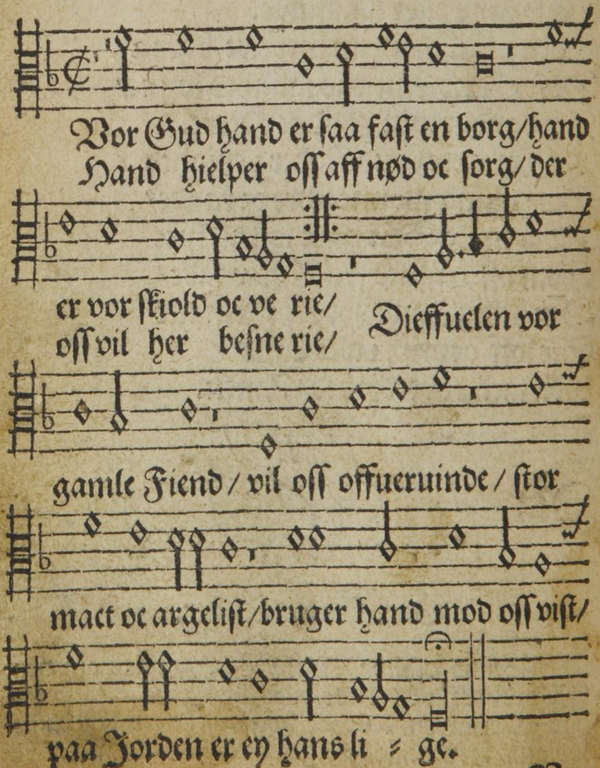 Vor Gud hand er saa fast en borg/hand
Hand hielper oss aff nød oc sorg/ der
er vor skiold oc ve rie/
oss vil her besne rie/
Dieffuelen vor
gamle Fiend / vil oss offueruinde / stor
mact oc argelist/bruger hand mod oss vist/
paa Jorden er ey hans li ⸗ ge.